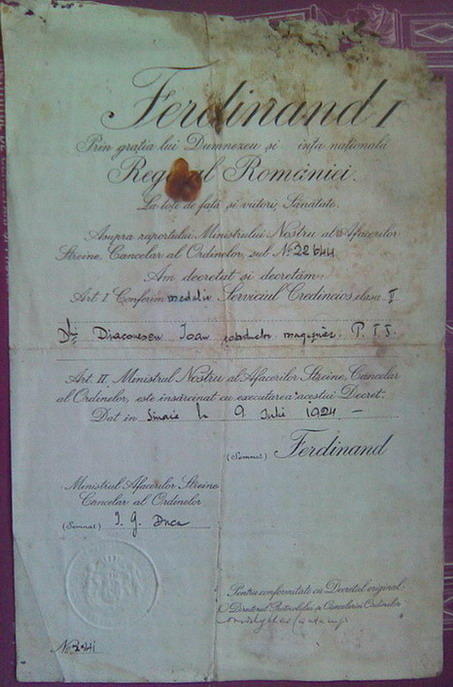 Ferdinand I
Prin grația lui Dumnezeu și ința națională
Regele României.
La toți de față și viitori, Sănătate.
Asupra raportului Ministrului Nostru al Afacerilor
Streine, Cancelar al Ordinelor, sub No 22644
Am decretat și decretăm:
Art. I. Conferim medalia Serviciul Credincios, clasa I
Dlui Diaconescu Ioan P. T. T.
Art. II. Ministrul Nostru al Afacerilor Streine, Cancelar
al Ordinelor, este însărcinat cu executarea acestui Decret.
Dat în Sinaia la 9 Iulie 1924.—
(Semnat) Ferdinand
Ministrul Afacerilor Streine
Cancelar al Ordinelor
(Semnat) I. G. Duca
Pentru conformitate cu Decretul original.
Directorul Protocolului și Cancelariei Ordinelor